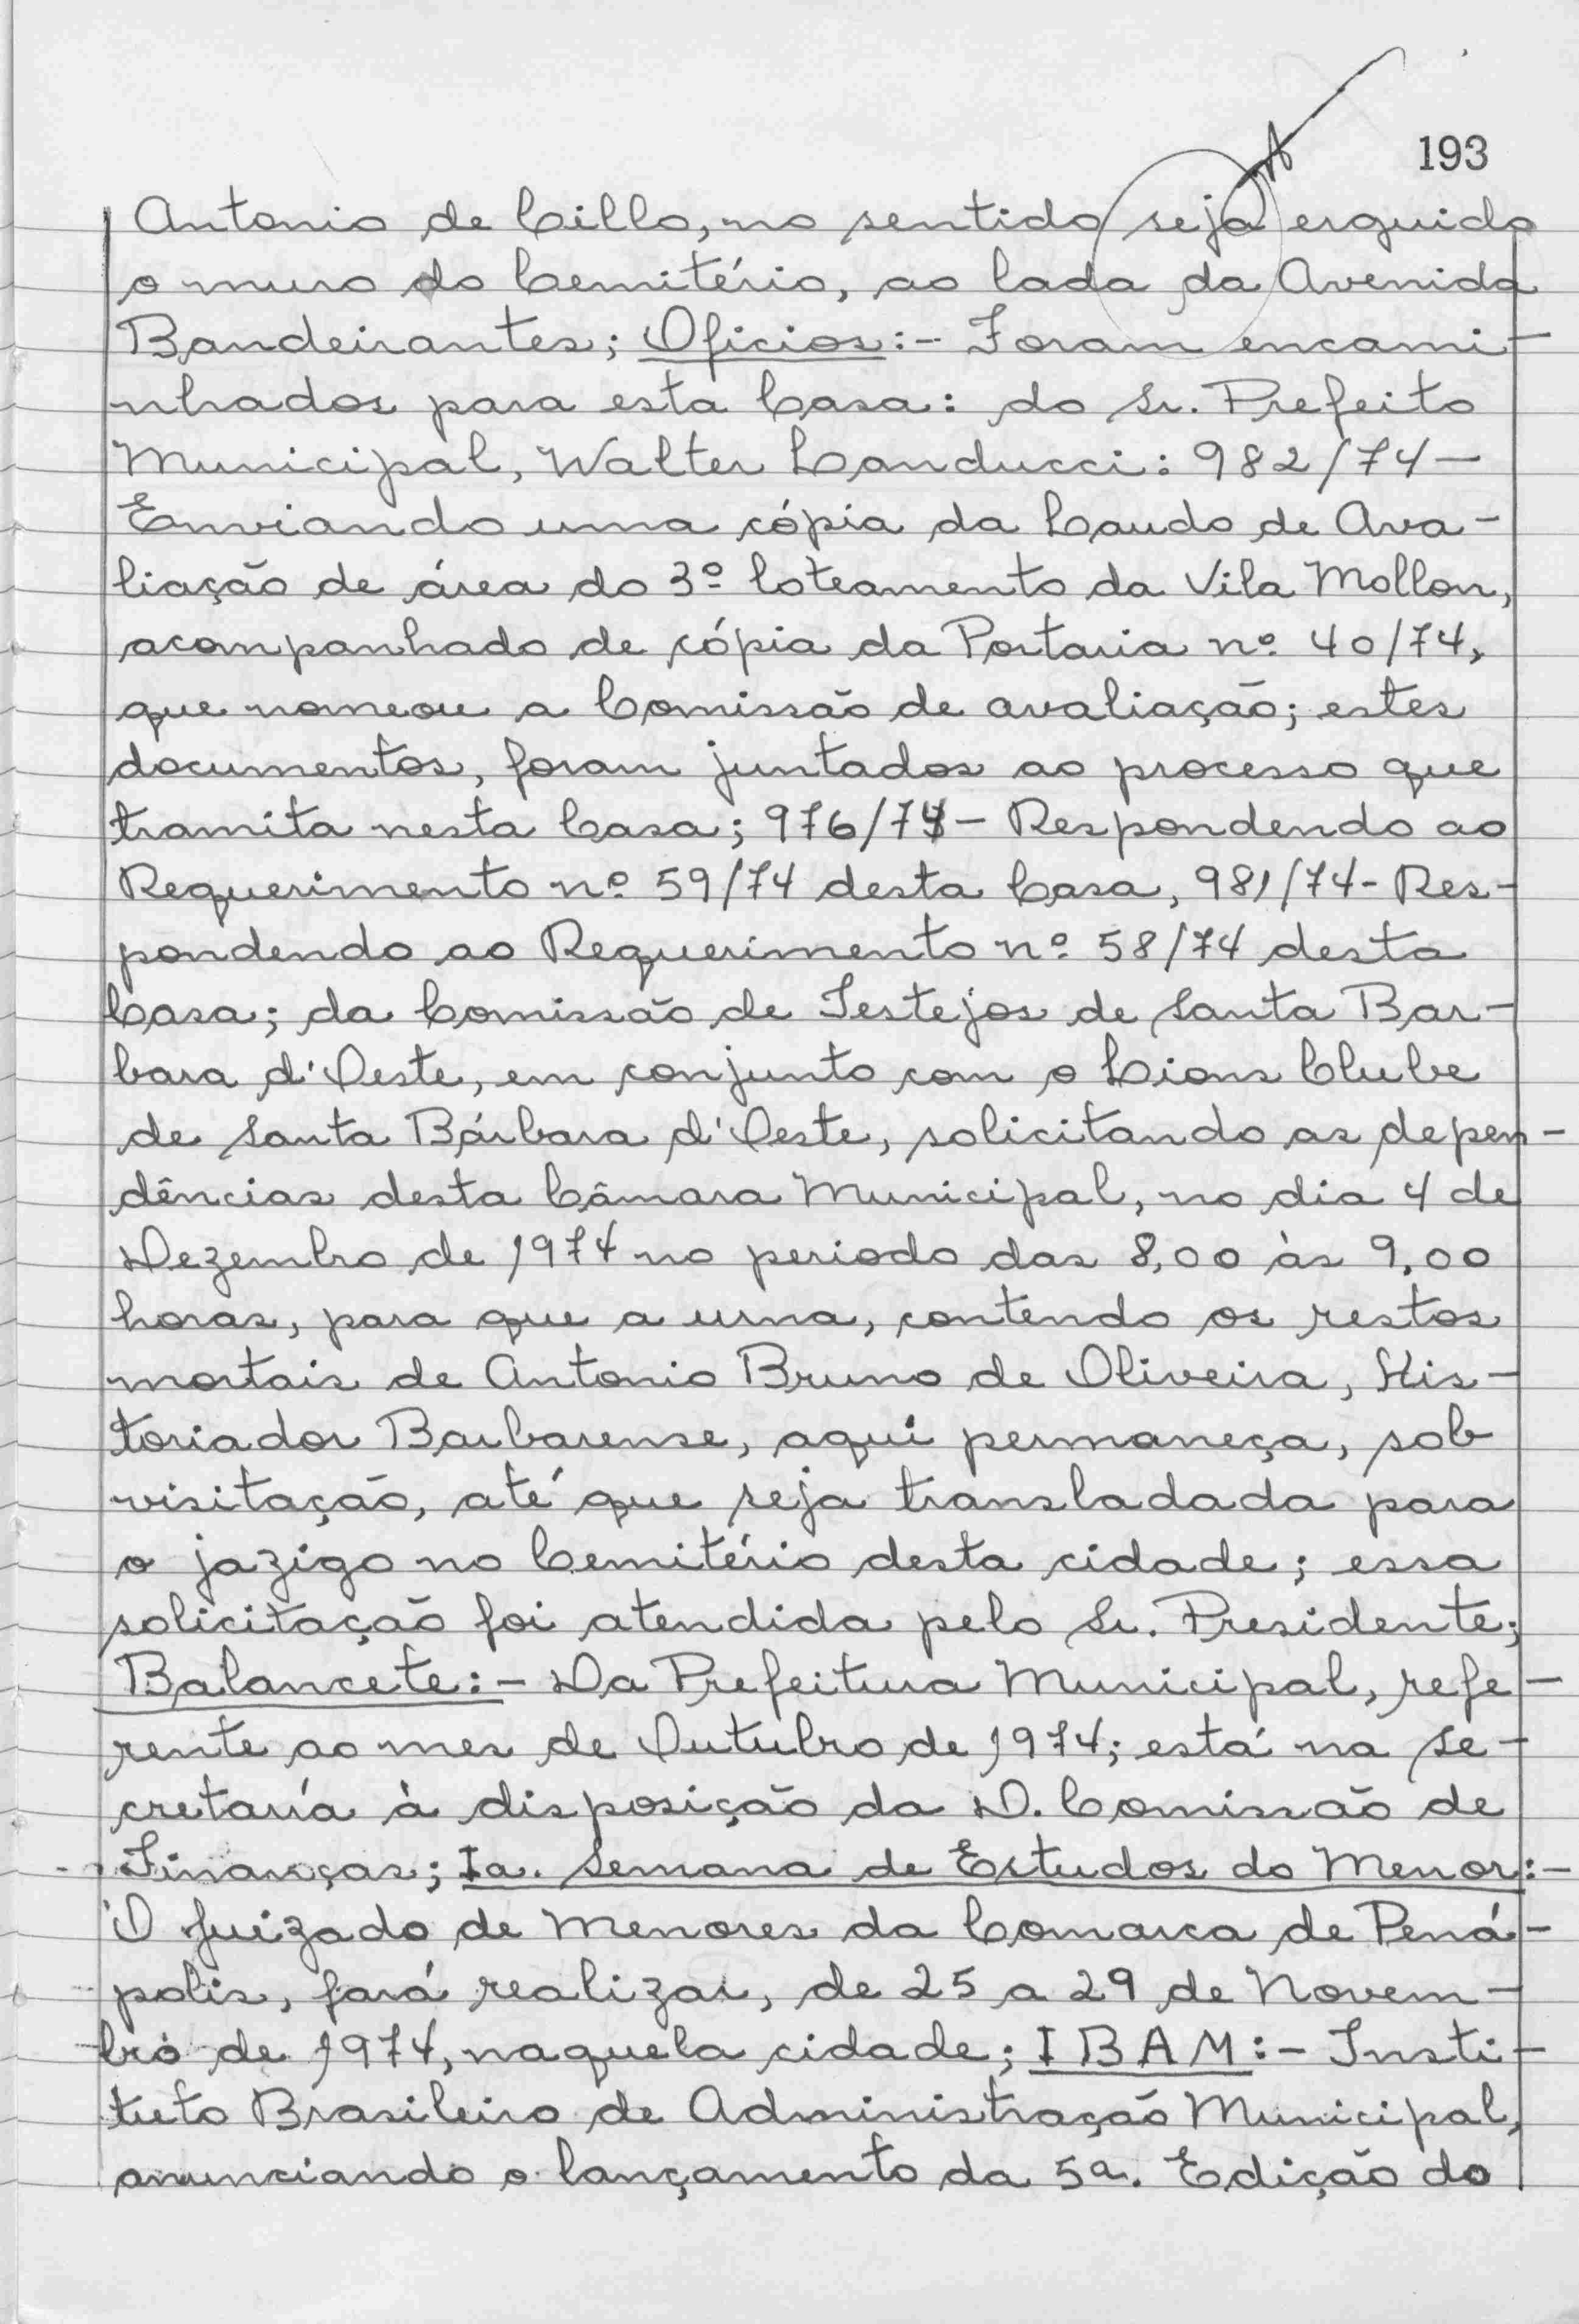 193
Antonio de Cillo, no sentido seja erguido
o muro do Cemitério, ao lado da Avenida
Bandeirantes; Oficios:- Foram encami-
nhados para esta Casa: do Sr. Prefeito
Municipal, Walter Landucci: 982/74 -
Enviando uma cópia da Laudo de Ava-
liação de área do 3º loteamento da Vila Mollon,
acompanhado de cópia da Portaria nº 40/74,
que nomeou a Comissão de avaliação; estes
documentos, foram juntados ao processo que
tramita nesta Casa; 976/74 - Respondendo ao
Requerimento nº 59/74 desta Casa, 981/74 - Res-
pondendo ao Requerimento nº 58/74 desta
Casa; da Comissão de Festejos de Santa Bar-
bara d'Oeste, em conjunto com o Lions Clube
de Santa Bárbara d'Oeste, solicitando as depen-
dências desta Câmara Municipal, no dia 4 de
Dezembro de 1974 no periodo das 8,00 às 9,00
horas, para que a urna, contendo os restos
mortais de Antonio Bruno de Oliveira, His-
toriador Barbarense, aqui permaneça, sob
visitação, até que seja transladada para
o jazigo no Cemitério desta cidade; essa
solicitação foi atendida pelo Sr. Presidente;
Balancete:- Da Prefeitura Municipal, refe-
rente ao mes de Outubro de 1974; está na Se-
cretaría à disposição da D. Comissão de
Finanças; Ia. Semana de Estudos do Menor:-
O Juizado de Menores da Comarca de Pená-
polis, fará realizar, de 25 a 29 de Novem-
bro de 1974, naquela cidade; IBAM:- Insti-
tuto Brasileiro de Administração Municipal,
anunciando o lançamento da 5a. Edição do